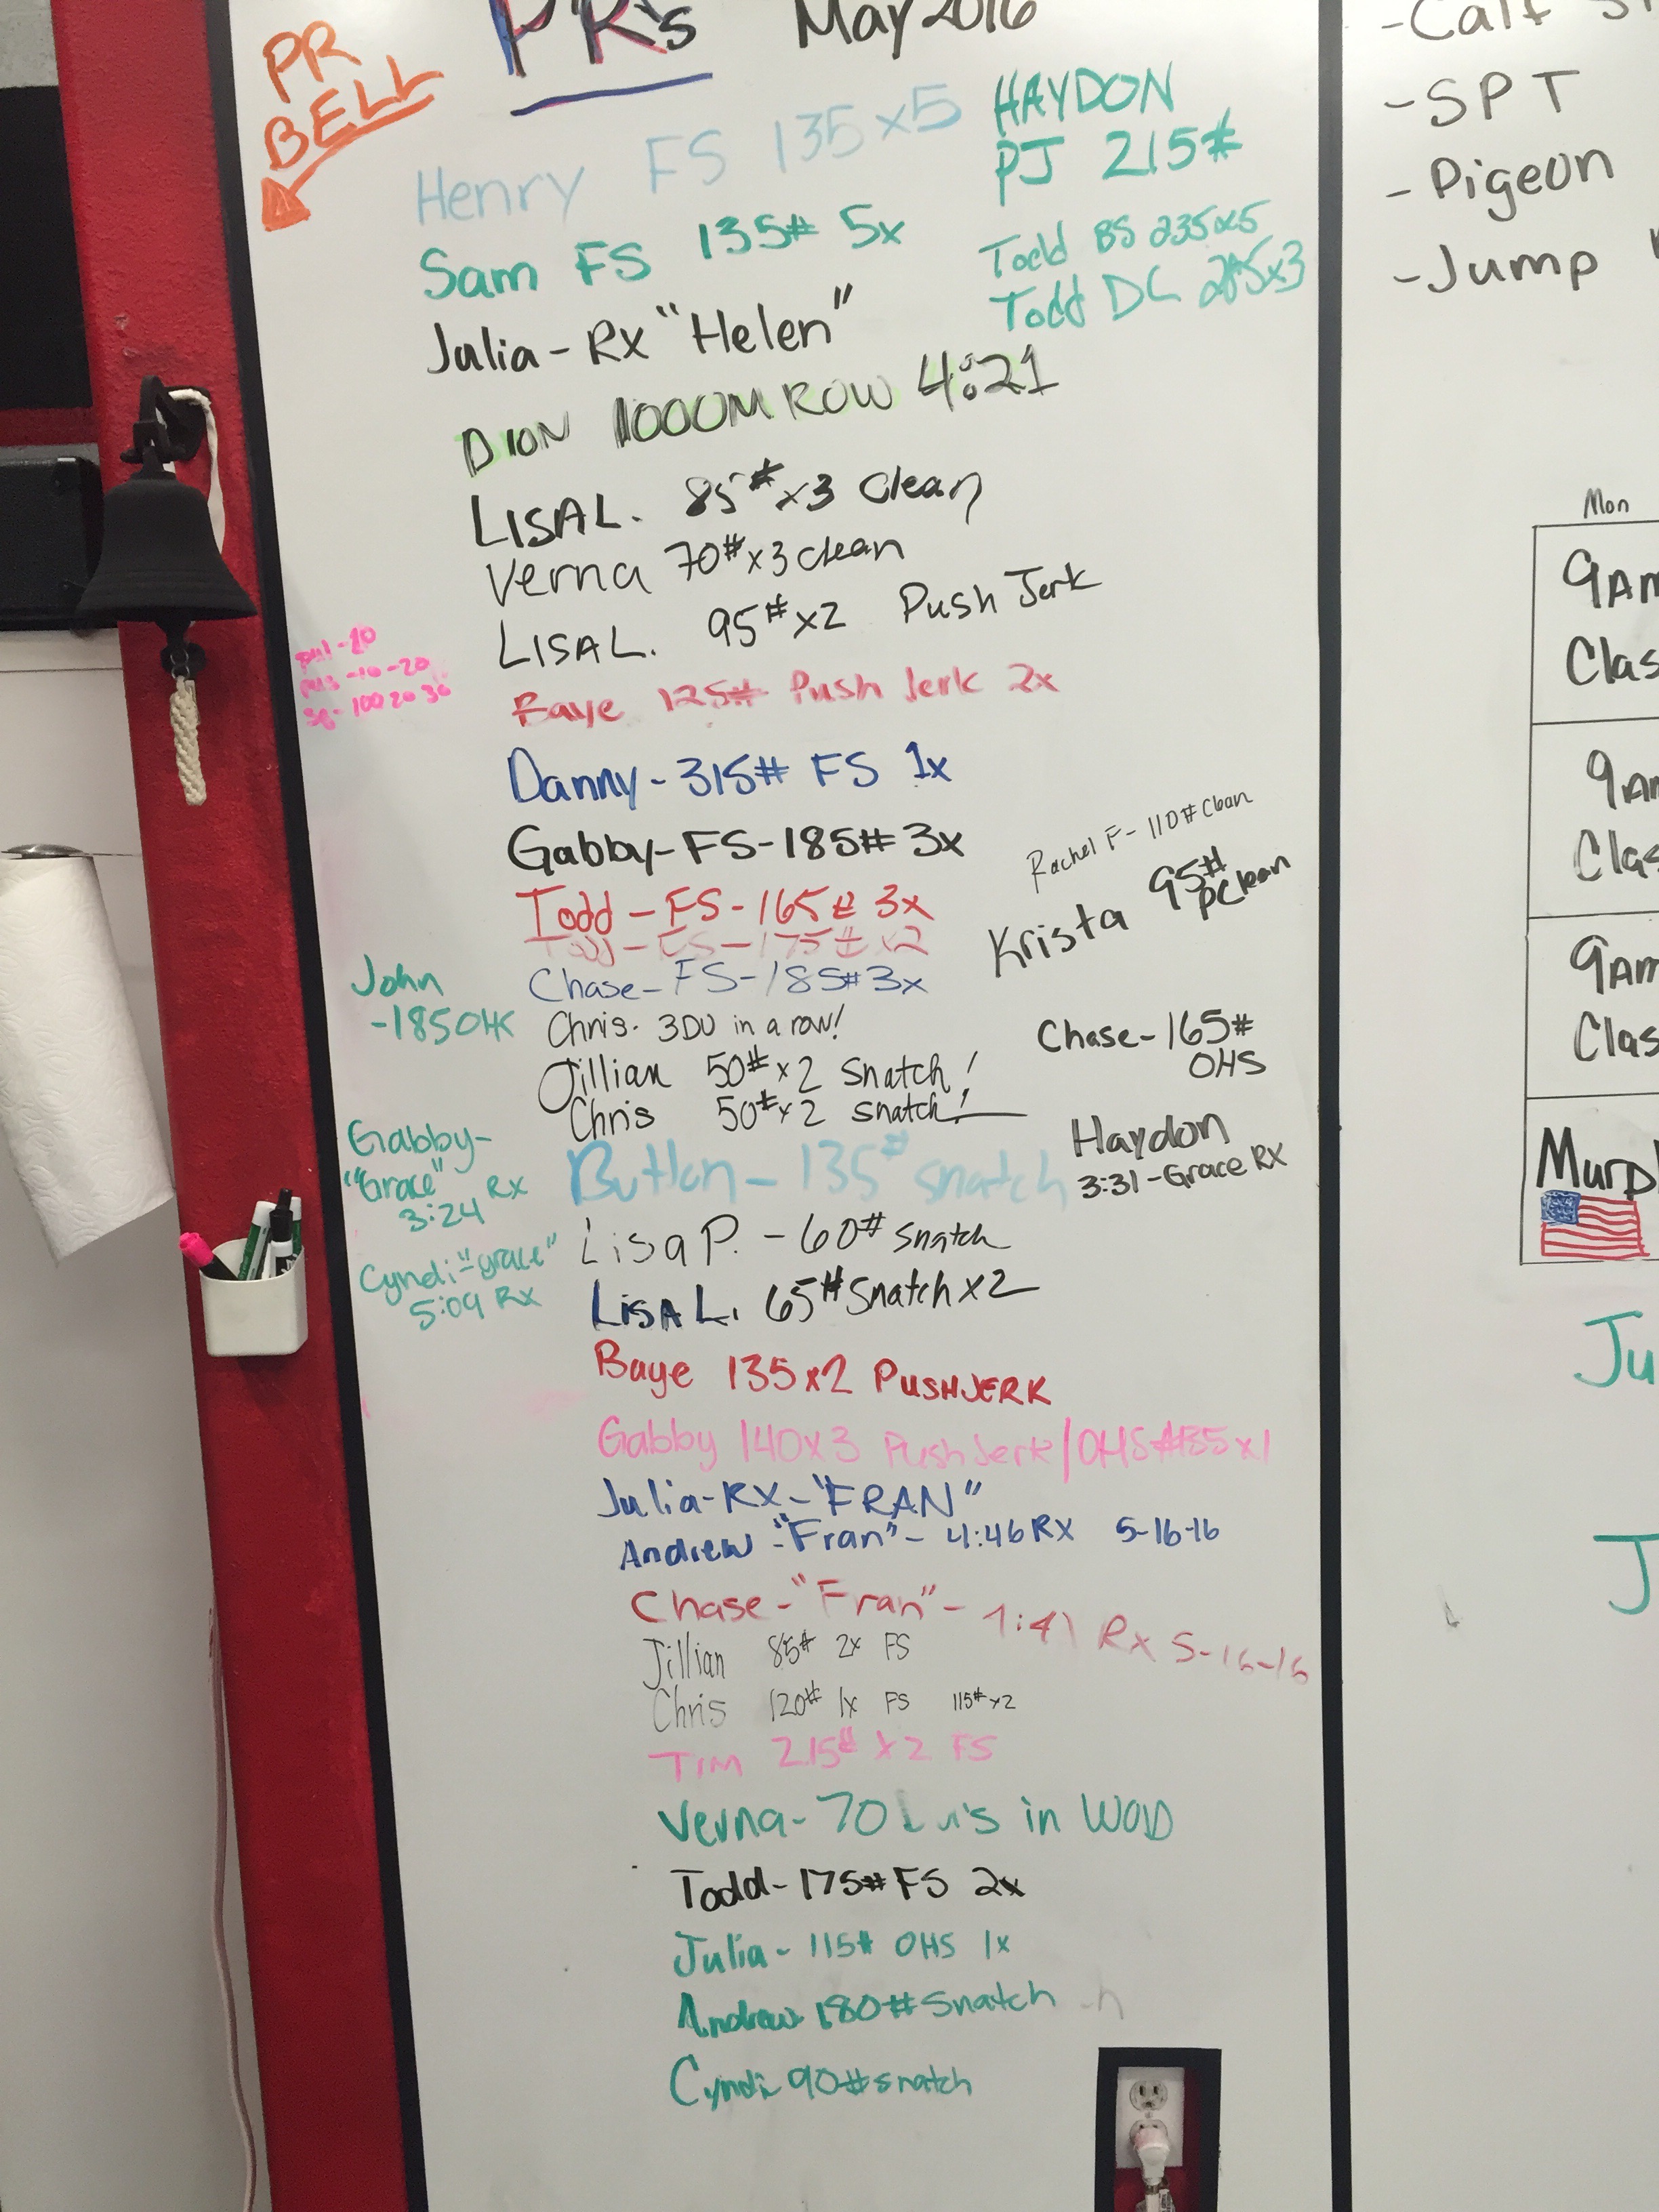 PR BELL
PR's May 2016
Henry FS 135x5
HAYDON
PJ 215#
Sam FS 135# 5x
Todd BS 235x5
Todd DL x3
Julia - Rx "Helen"
DION 1000M ROW 4:21
LISA L. 85# x3 Clean
Verna 70# x3 clean
LISA L. 95# x2 Push Jerk
-10
-10-20
100 20 30
Baye 125# Push Jerk 2x
Danny - 315# FS 1x
Gabby - FS - 185# 3x
Rachel F - 110# Clean
Krista 95# pclean
Todd - FS - 165# 3x
Todd - FS - 175# x2
John
-185
Chase - FS - 185# 3x
Chris - 3DU in a row!
Chase - 165#
OHS
Jillian 50# x2 Snatch!
Chris 50# x2 snatch!
Gabby -
"Grace" Rx
3:24
Haydon
3:31 - Grace RX
135# snatch
Lisa P. - 60# snatch
Cyndi "grace"
5:09 Rx
LISA L. 65# Snatch x2
Baye 135 x2 PUSHJERK
Gabby 140x3 Push Jerk / OHS x1
Julia - RX - "FRAN"
Andrew - "Fran" - 4:46 RX 5-16-16
Chase - "Fran" - Rx 5-16-16
Jillian 85# 2x FS
Chris 120# 1x FS 115# x2
TIM 215# x2 FS
Verna - 70 in WOD
Todd - 175# FS 2x
Julia - 115# OHS 1x
Andrew 180# Snatch
Cyndi 90# snatch
-Calf
-SPT
-Pigeon
-Jump
Mon
9AM
Clas
9AM
Clas
9AM
Clas
Murp
Ju
J